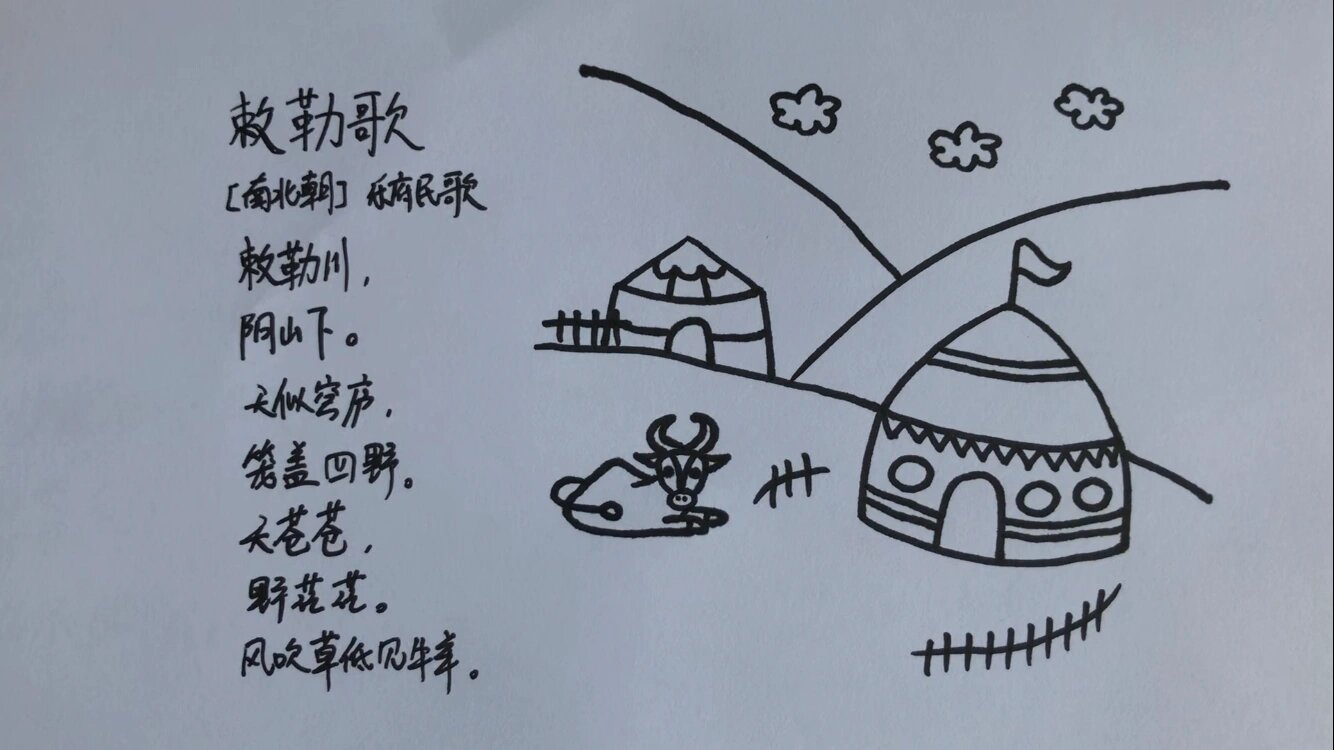 敕勒歌
[南北朝] 乐府民歌
敕勒川，
阴山下。
天似穹庐，
笼盖四野。
天苍苍，
野茫茫。
风吹草低见牛羊。